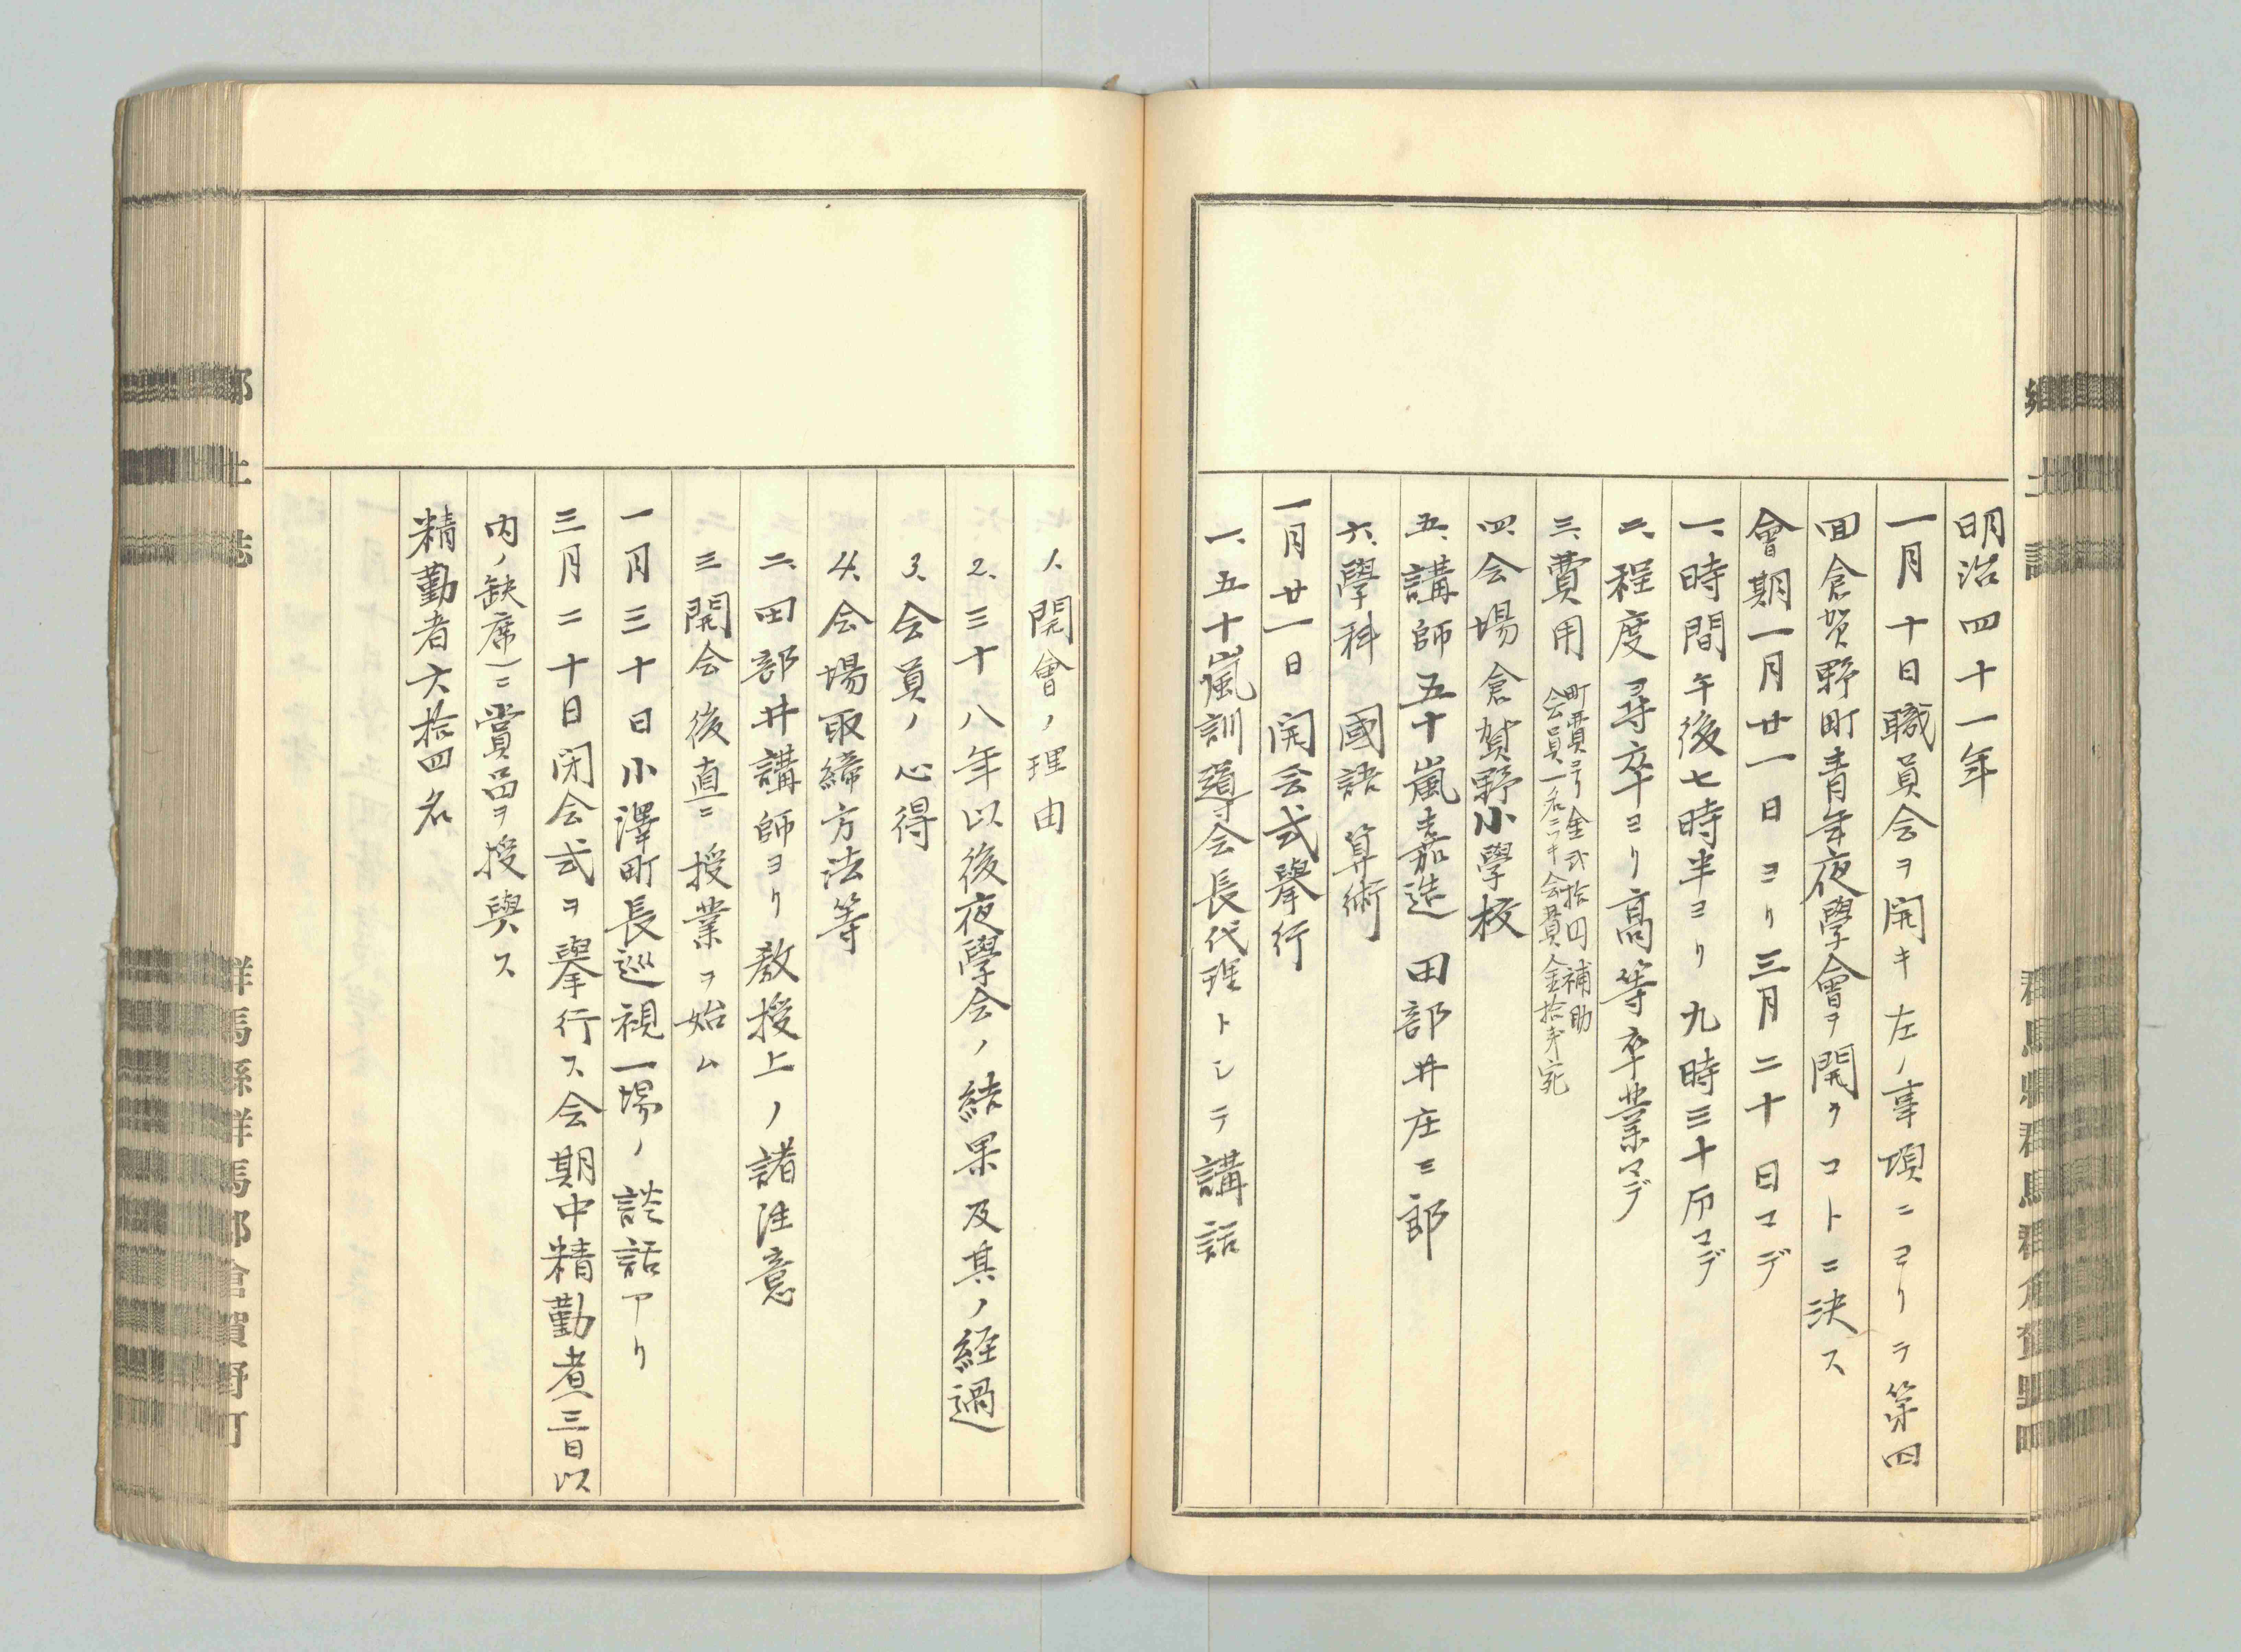 明治四十一年
一月十日職員会ヲ開キ左ノ事項ニヨリテ第四
回倉賀野町青年夜學會ヲ開クコトニ決ス
會期一月廿一日ヨリ三月二十日マデ
一、時間午後七時半ヨリ九時三十分マデ
二、程度尋卒ヨリ高等卒業マデ
三、費用 町費ヨリ金弐拾円補助
会員一名ニツキ会費金拾銭宛
四、会場倉賀野小學校
五、講師五十嵐嘉造 田部井庄三郎
六、學科 國語 算術
一月廿一日開会式擧行
一、五十嵐訓導会長代理トシテ講話
1、開會ノ理由
2、三十八年以後夜學会ノ結果及其ノ経過
3、会員ノ心得
4、会場取締方法等
二、田部井講師ヨリ教授上ノ諸注意
三開会後直ニ授業ヲ始ム
一月三十日小澤町長巡視一場ノ談話アリ
三月二十日閉会式ヲ擧行ス会期中精勤者三日以
内ノ缺席ニ賞品ヲ授與ス
精勤者六拾四名
郷土誌
群馬縣群馬郡倉賀野町